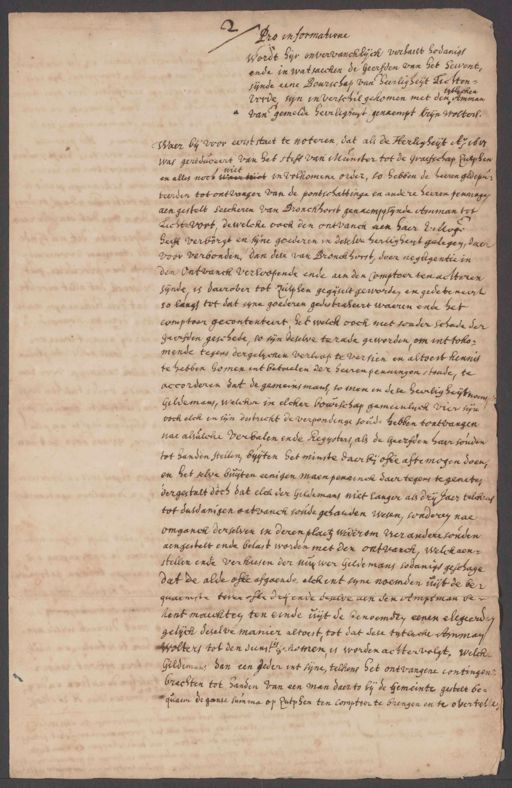 2
Pro informatione
Wordt hijr onvervanckelijck verhaelt hodanigs
ende in wat saecken de Geerfden van het Gevent,
sijnde eene Bourschap van Heerligheijt Lichten-
vorde, sijn in verschil gekomen met den tytschen Amman
van gemelde heerligheijt genaempt Krijn Wolters.
Waer bij voor eerst staet te noteren, dat als de Herligheijt Ao
was gereduceert van het stift van Munster tot de Graefschap Zutphen
en alles noch niet in volkomene order, so hebben de heeren gedepu-
teerden tot ontvanger van de pontschattinge en andere heeren penningen
aengestelt seeckeren van Bronckhorst genaempt sijnde Amman tot
Lichtvort, dewelcke voor den ontvanck aen haer
heeft verborgt en sijne goederen in deselve herligheijt gelegen, daer
voor verbonden, dan dese van Bronckhorst, door negligentie in
den ontvanck verloopende ende aen den Comptoer ten achteren
sijnde, is daerover tot Zutphen gegijselt geworden en gedetineert
so langh tot dat sijne goederen gedistraheert waeren ende het
comptoer gecontenteert, het welck oock niet sonder schade der
Geerfden geschede, so sijn deselve te rade geworden, om int toko-
mende tegens dergelijcken verloop te versien en altoest kennis
te hebben tot betaelen der heerenpenningen stonde, te
accorderen dat de gemeinsmans, so men in dese heerligheijt noemt
Gildemans, welcker in elcker bourschap gemeenlijck vier sijn
oock elck in sijn districht de verpondinge soude hebben te ontvangen
nae alsulcke Verbalen ende Registers, als de Geerfden haer souden
tot handen stellen, buijten het minste daer bij ofte afte mogen doen,
en het selve buijten eenigen maenpenninck daer tegens te genieten
dergestalt doch dat elck der Gildemans niet langer als drij jaer
tot dusdanigen ontvanck soude gehouden wesen, sonderen nae
omganck derselven in deren plaetz wederom vier andere souden
aengestelt ende belast worden met den ontvanck, welck aen-
stellen ende verkiesen der nuijwer Gildemans sodanigh geschage
dat de alde ofte afgaende, elck int syne noemden uijt de be-
quaemste twee ofte drij ende deselve aen den Amptman be-
kent maeckten ten einde uijt de genoemden eenen eligeerden
gelijck deselve manier altoest, tot dat dese tytlicke Amman
Wolters tot den dienst is gekomen, is worden achtervolgt, welcke
Gildemans dan een jeder int sijne, telckens het ontvangene contingent
brachten tot handen van een man daer to bij de Gemeinte gestelt be-
quaem de ganse summa op Zutphen ten comptoer te brengen en te overtellen,